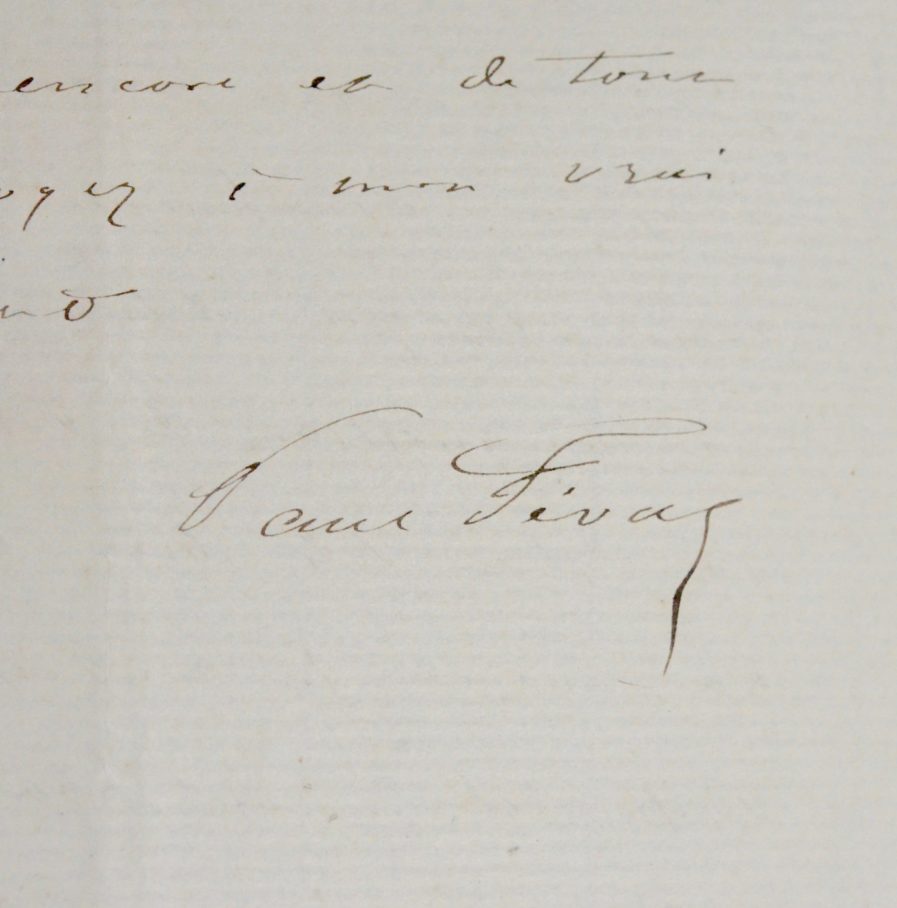 encore et de tout
à mon vrai
Paul Féval